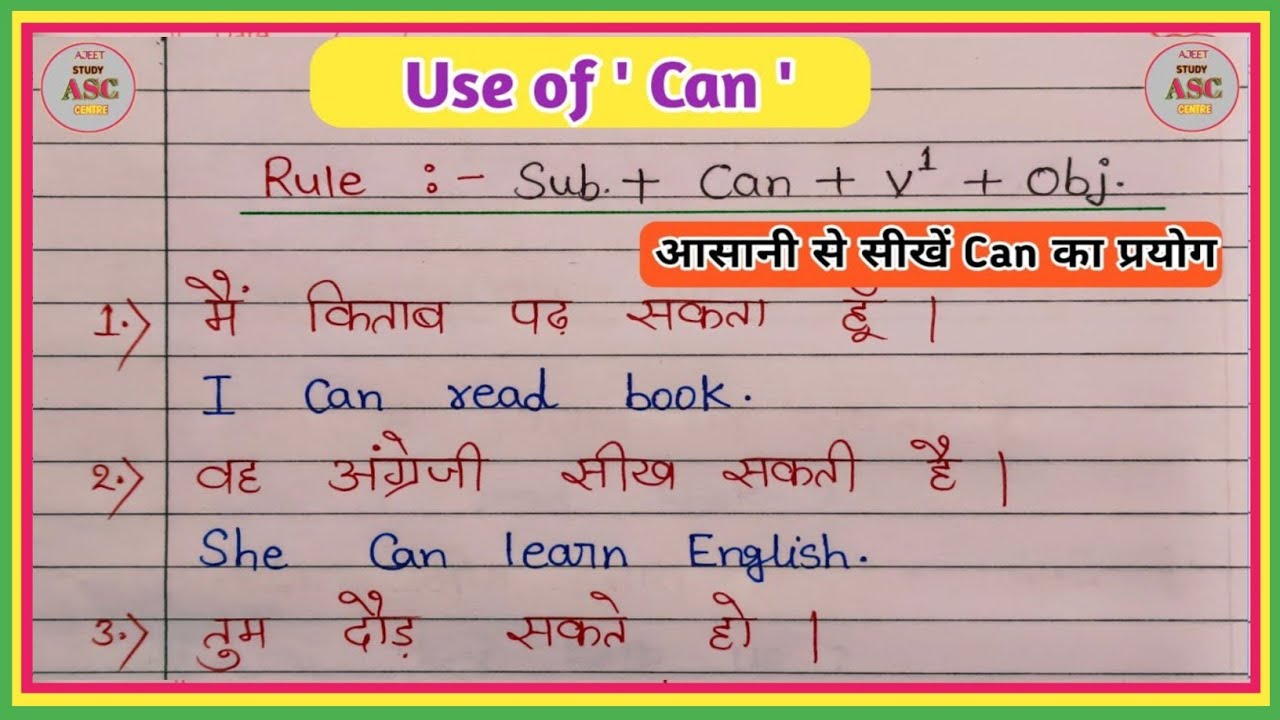 AJEET
STUDY
ASC
CENTRE
Use of ' Can '
AJEET
STUDY
ASC
CENTRE
Rule :- Sub. + Can + V¹ + Obj.
आसानी से सीखें Can का प्रयोग
1.) मैं किताब पढ़ सकता हूँ |
I Can read book.
2.) वह अंग्रेजी सीख सकती है |
She Can learn English.
3.) तुम दौड़ सकते हो |